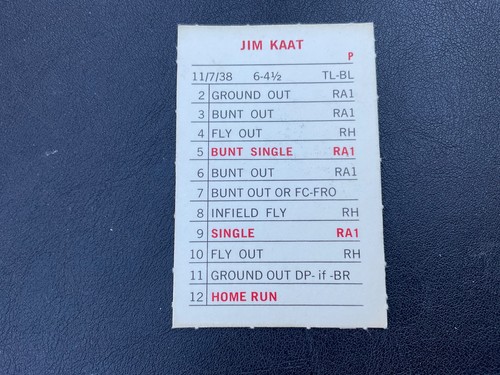 JIM KAAT
P
11/7/38 6-4½ TL-BL
2 GROUND OUT RA1
3 BUNT OUT RA1
4 FLY OUT RH
5 BUNT SINGLE RA1
6 BUNT OUT RA1
7 BUNT OUT OR FC-FRO
8 INFIELD FLY RH
9 SINGLE RA1
10 FLY OUT RH
11 GROUND OUT DP- if -BR
12 HOME RUN